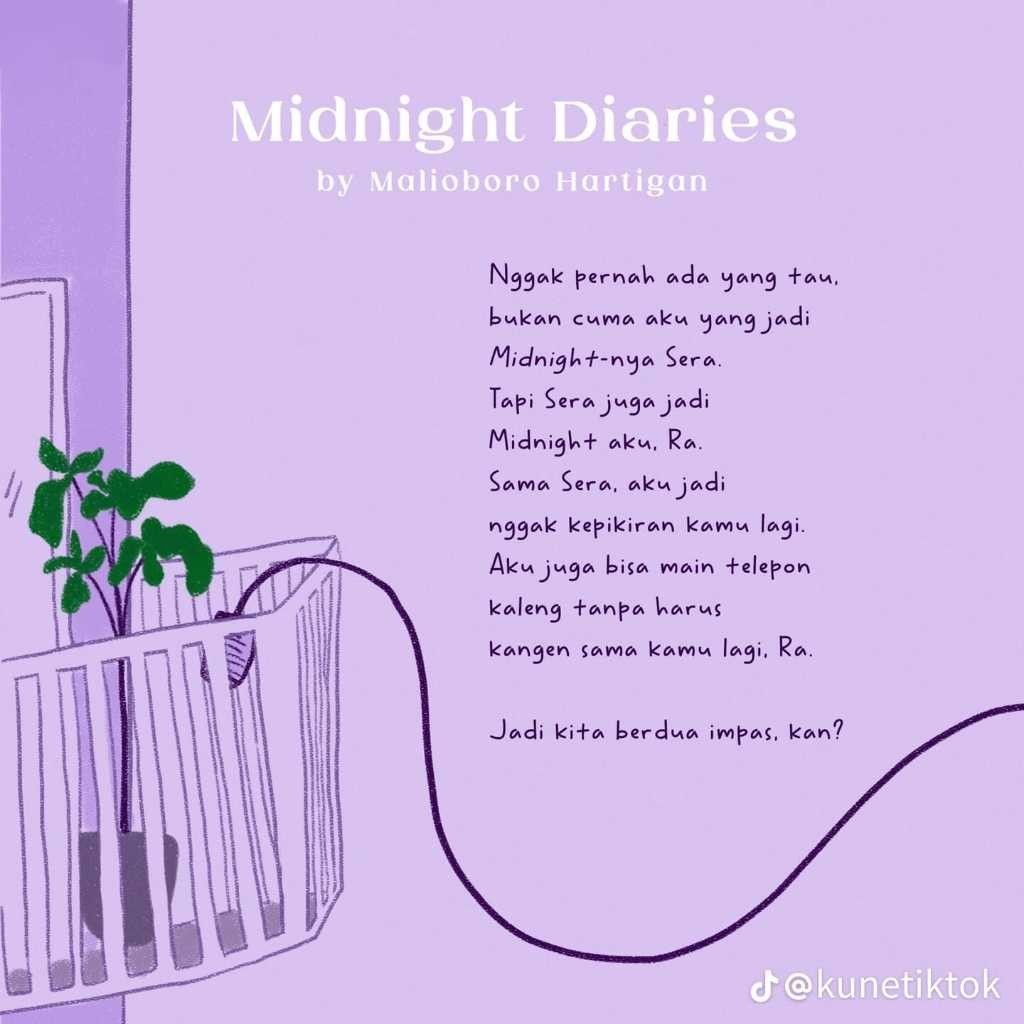 Midnight Diaries
by Malioboro Hartigan
Nggak pernah ada yang tau,
bukan cuma aku yang jadi
Midnight-nya Sera.
Tapi Sera juga jadi
Midnight aku, Ra.
Sama Sera, aku jadi
nggak kepikiran kamu lagi.
Aku juga bisa main telepon
kaleng tanpa harus
kangen sama kamu lagi, Ra.
Jadi kita berdua impas, kan?
@kunetiktok